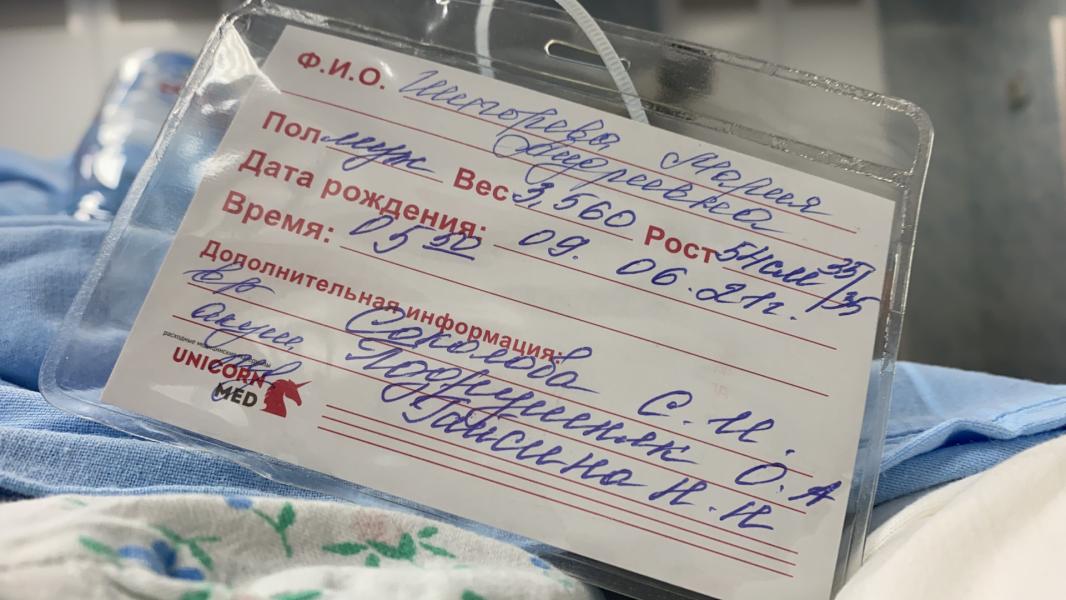 Ф.И.О. Мария
Андреевна
Пол муж Вес 3,560 Рост 54см 35/35
Дата рождения: 09. 06. 21г.
Время: 05 30
Дополнительная информация:
вр Соколова С. И.
акуш О. А
Гансина Н. Н
расходные медицинские
UNICORN
MED